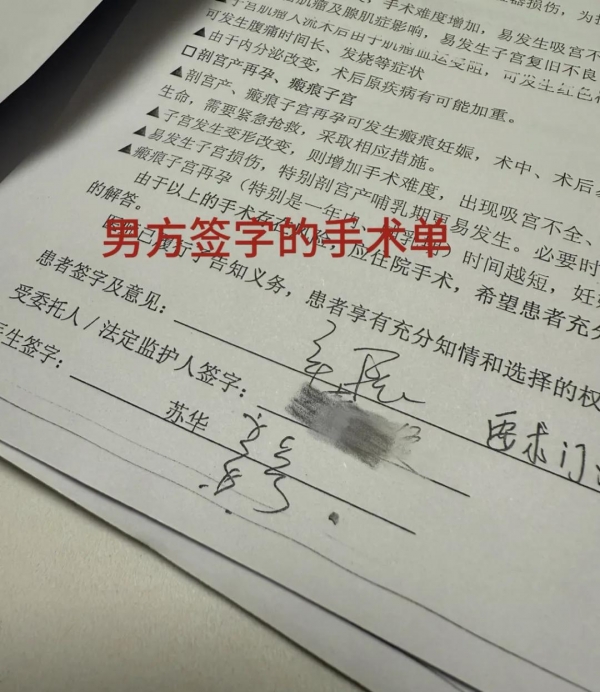 肌瘤及腺肌症影响，手术难度增加，易发生吸宫不
▲子宫肌瘤人流术后由于肌瘤血运受阻，可发生红色
可发生腹痛时间长、发烧等症状
▲由于内分泌改变，术后原疾病有可能加重。
□剖宫产再孕、瘢痕子宫
▲剖宫产、瘢痕子宫再孕可发生瘢痕妊娠，术中、术后
生命，需要紧急抢救，采取相应措施。
▲子宫发生变形改变，则增加手术难度，出现吸宫不全、
▲易发生子宫损伤，特别剖宫产哺乳期更易发生。必要时
▲瘢痕子宫再孕（特别是一年内 时间越短，妊
由于以上的手术 应住院手术，希望患者充分
的解答。
告知义务，患者享有充分知情和选择的权
男方签字的手术单
患者签字及意见：
受委托人/法定监护人签字：
要求门
医生签字：
苏华